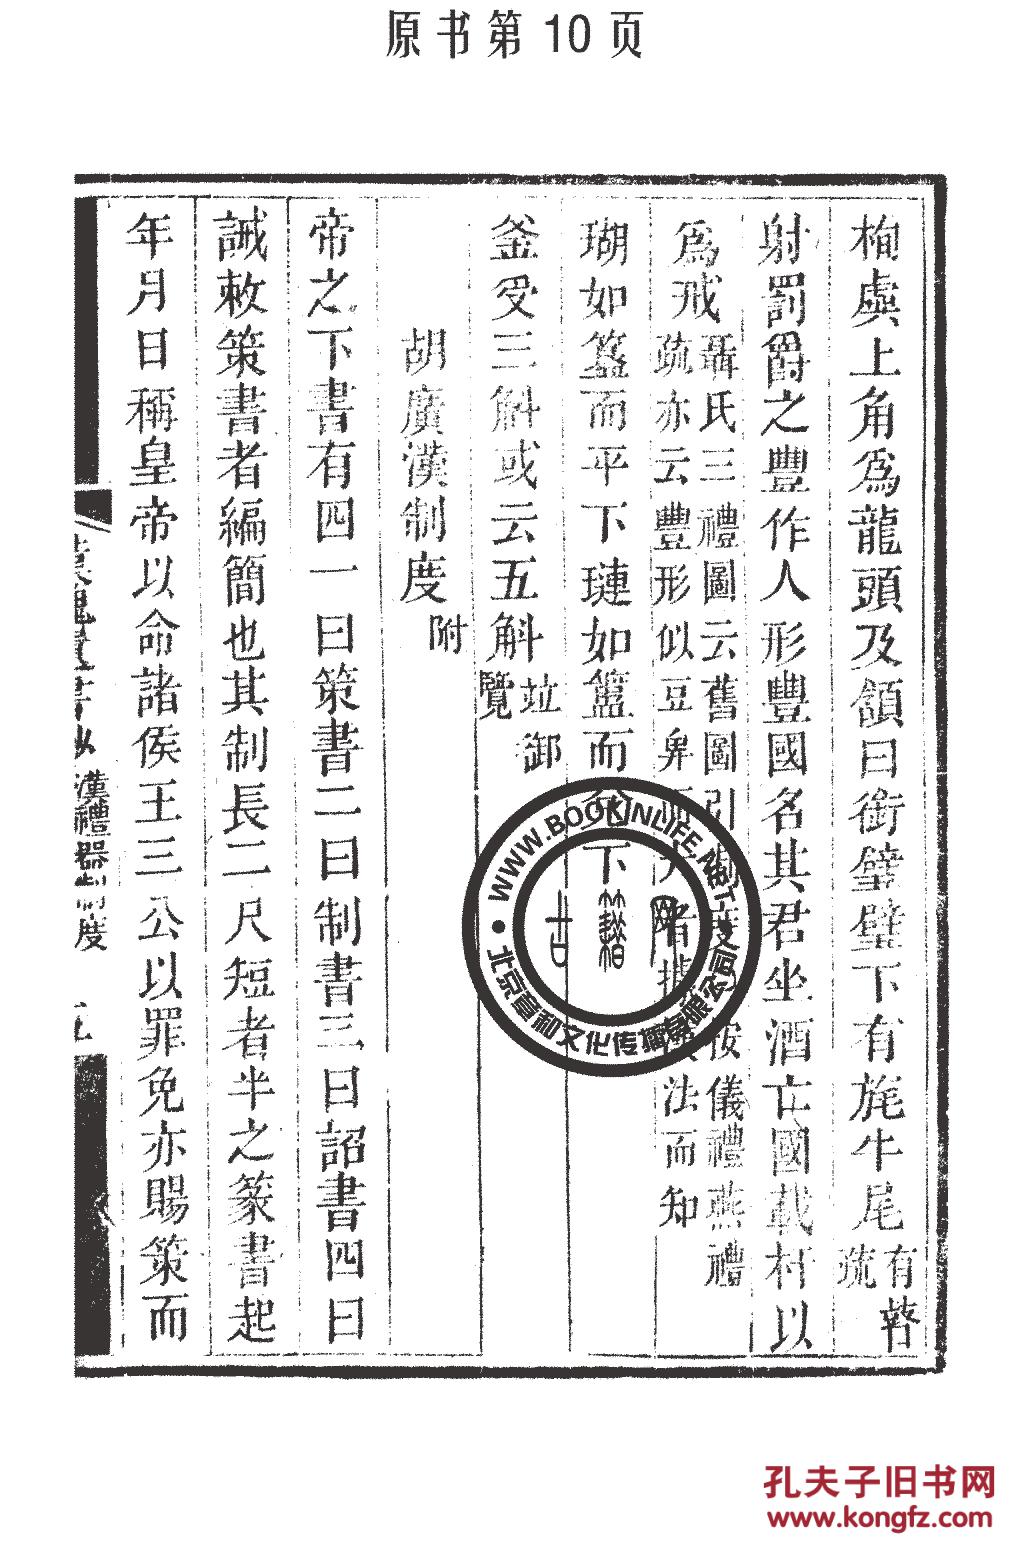 原书第10页
栒虡上角爲龍頭及頷曰銜璧璧下有旄牛尾有瞽疏
射罰爵之豐作人形豐國名其君坐酒亡國載杅以
爲戒聶氏三禮圖云舊圖引制度按儀禮燕禮疏亦云豐形似豆卑而大者法而知
瑚如簋而平下璉如簠而下
釜受三斛或云五斛竝御覽
胡廣漢制度附
帝之下書有四一曰策書二曰制書三曰詔書四曰
誡敕策書者編簡也其制長二尺短者半之篆書起
年月日稱皇帝以命諸侯王三公以罪免亦賜策而
漢禮器制度
五
WWW.BOOKINLIFE.NET
北京章和文化传播有限公司
古籍网
孔夫子旧书网
www.kongfz.com